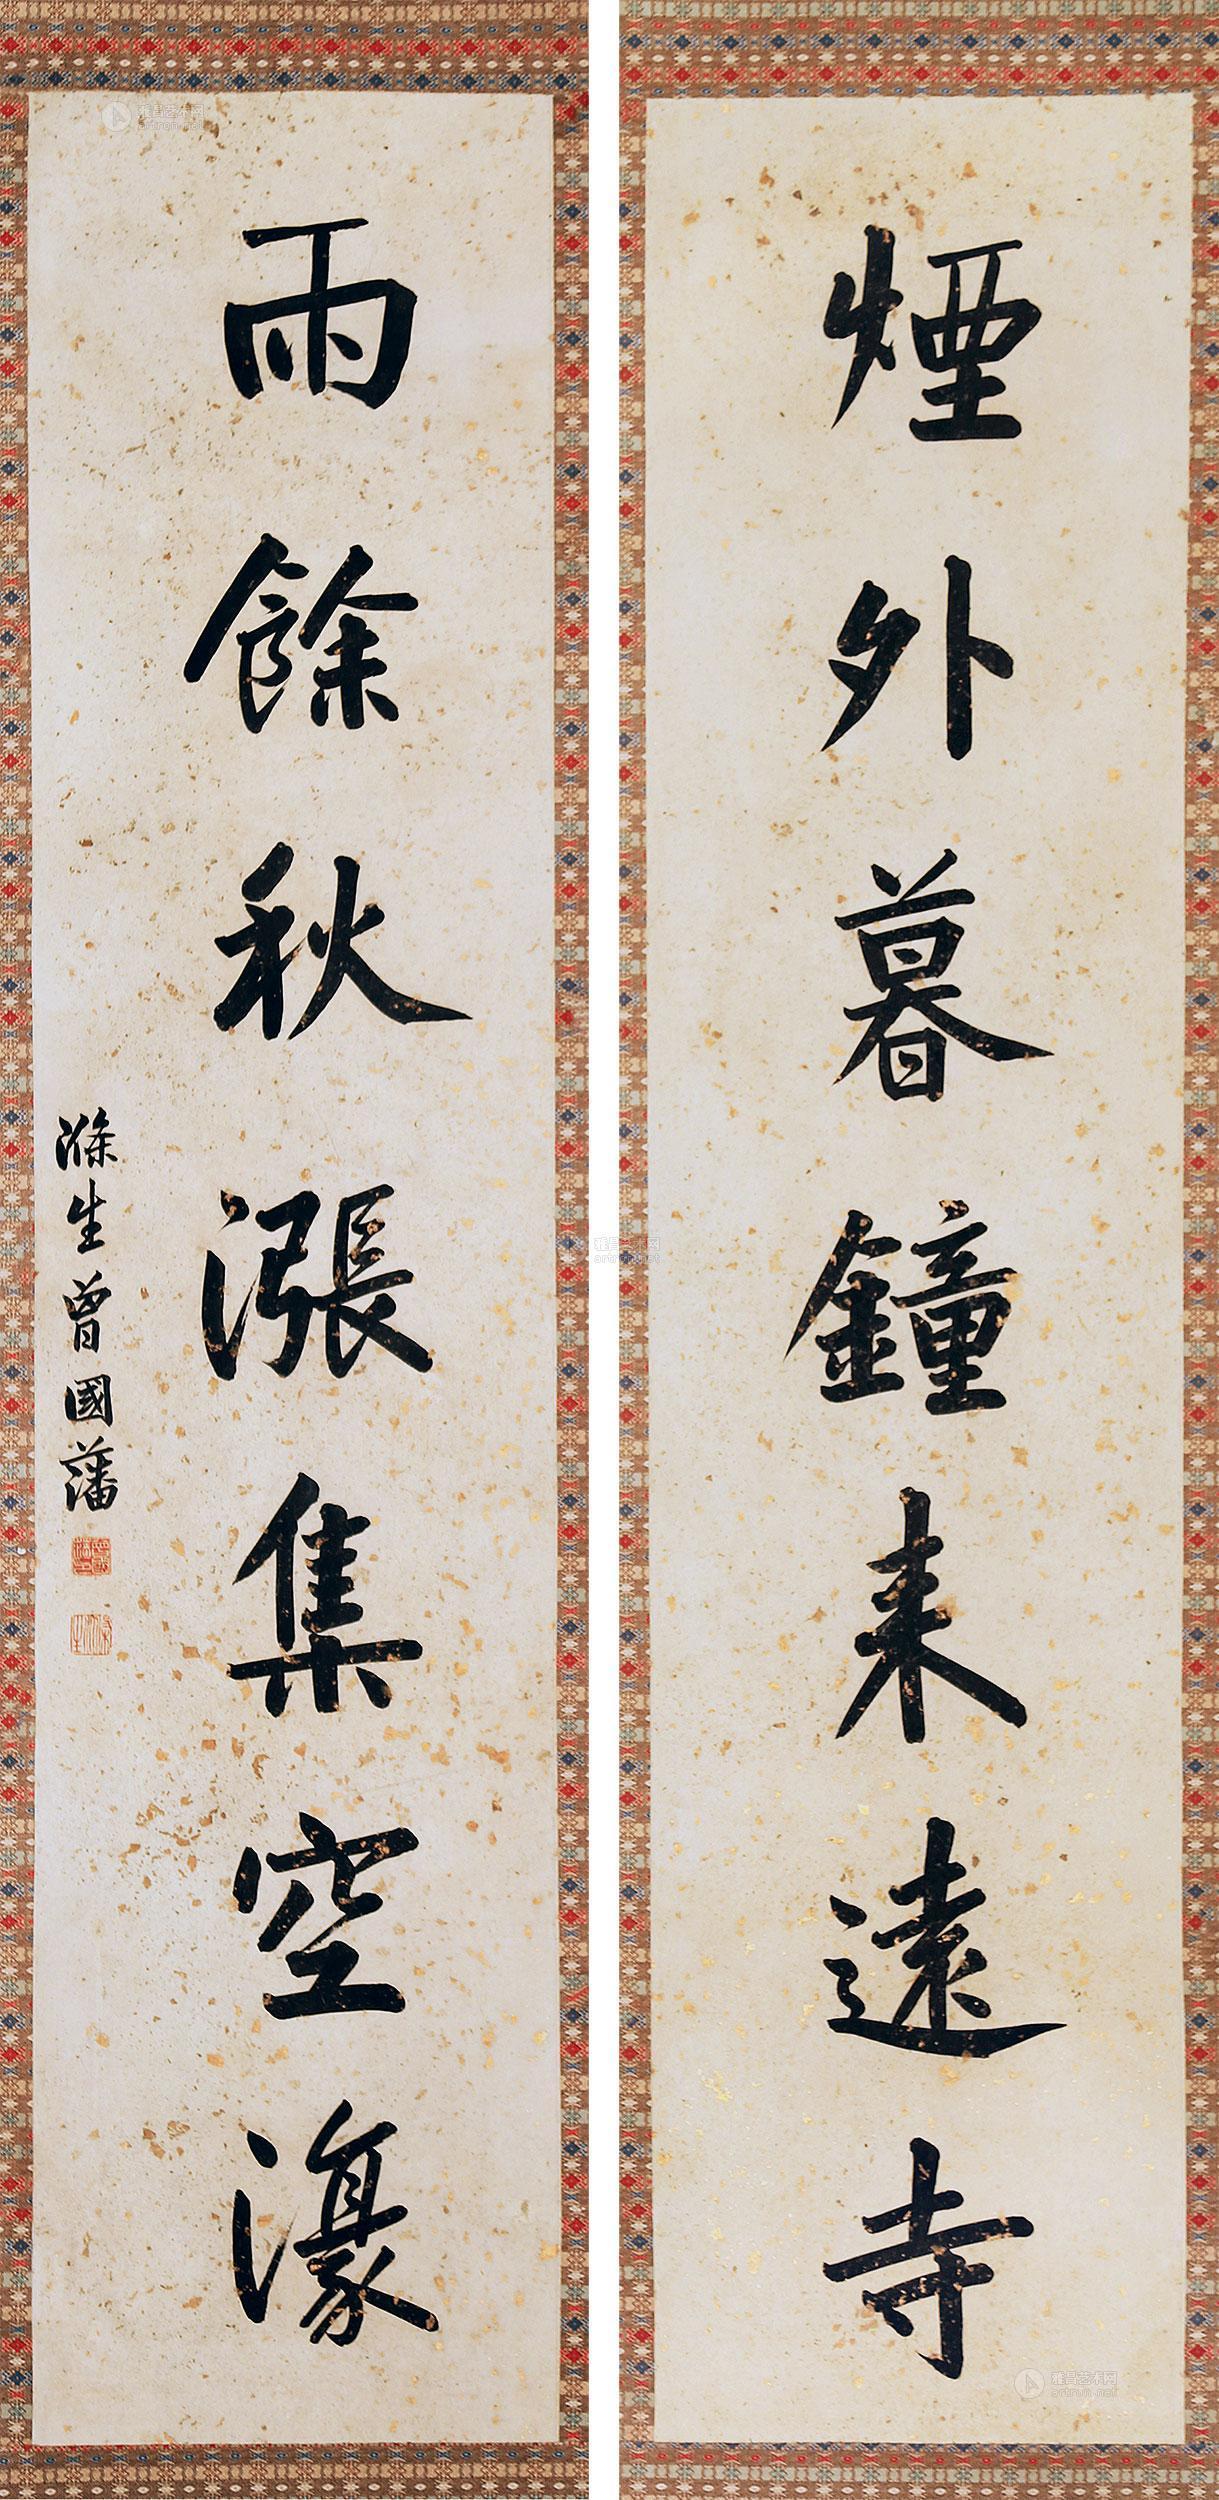 煙外暮鐘来遠寺
雨餘秋漲集空濠
滌生曾國藩
雅昌艺术网
artron.net
雅昌艺术网
artron.net
雅昌艺术网
artron.net